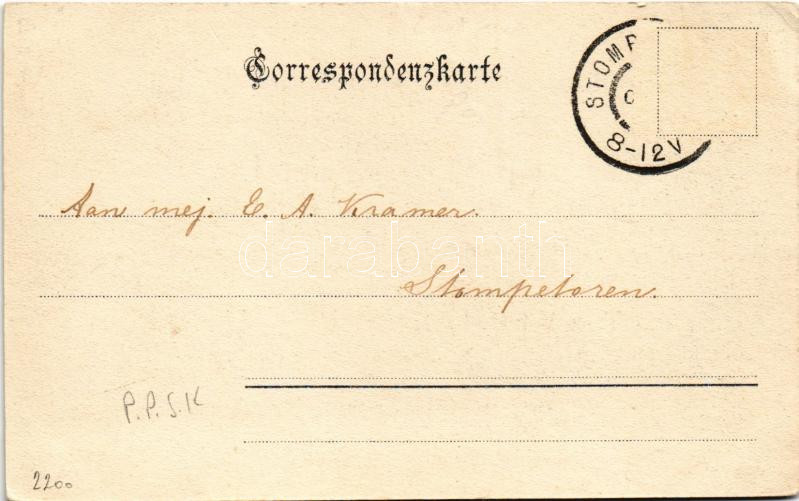 Correspondenzkarte
STOMP
8-12V
Aan mej. E. A. Kramer.
darabanth
Stompetoren.
P.P.S.K
2200